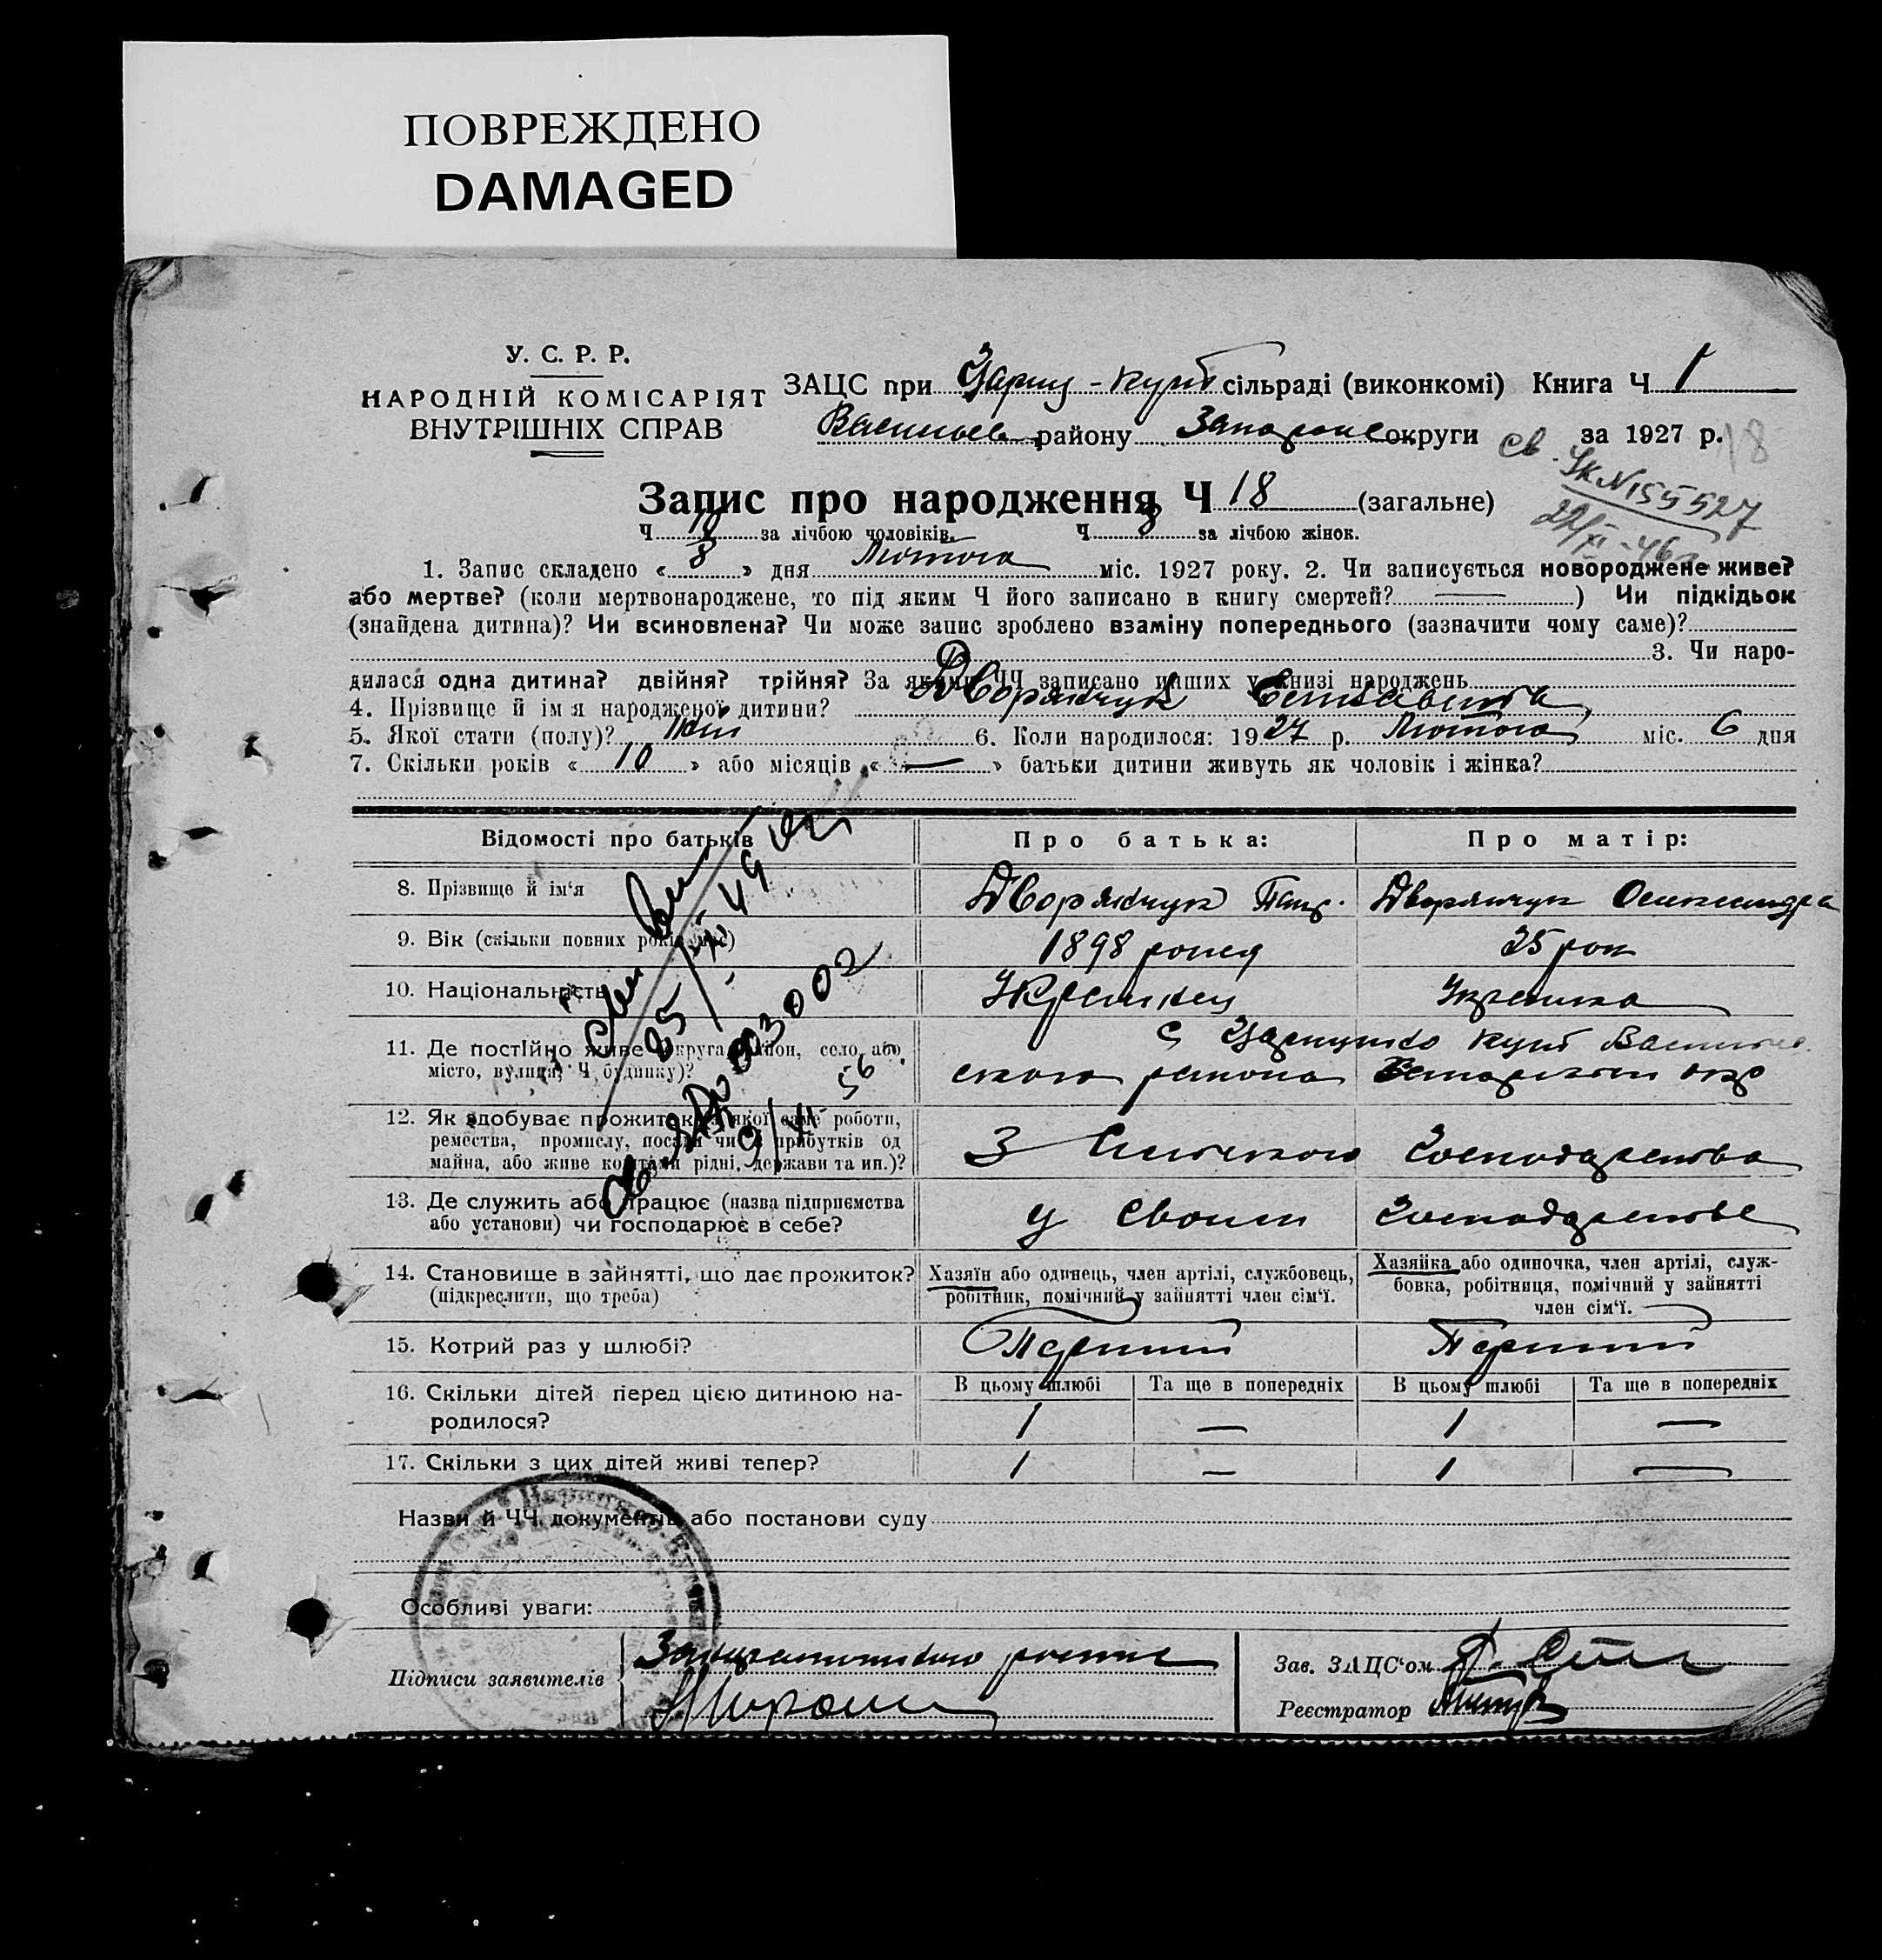 ПОВРЕЖДЕНО
DAMAGED
У. С. Р. Р.
НАРОДНІЙ КОМІСАРІЯТ
ВНУТРІШНІХ СПРАВ
ЗАЦС при Цариц-Кут сільраді (виконкомі) Книга Ч 1
Василів району Запорізьк округи за 1927 р. 18
св. ЯК N 155527
22/XI-46 г
Запис про народження Ч 18 (загальне)
Ч 10 за лічбою чоловіків. Ч 8 за лічбою жінок.
1. Запис складено « 8 » дня Лютого міс. 1927 року. 2. Чи записується новороджене живе?
або мертве? (коли мертвонароджене, то під яким Ч його записано в книгу смертей? ) Чи підкідьок
(знайдена дитина)? Чи всиновлена? Чи може запис зроблено взаміну попереднього (зазначити чому саме)?
3. Чи наро-
дилася одна дитина? двійня? трійня? За якими ЧЧ записано инших у книзі народжень
4. Прізвище й ім'я народженої дитини? Дворянчук Єлизавета,
5. Якої стати (полу)? Жін 6. Коли народилося: 1927 р. Лютого міс. 6 дня
7. Скільки років « 10 » або місяців « — » батьки дитини живуть як чоловік і жінка?
Відомості про батьків Про батька: Про матір:
8. Прізвище й ім'я Дворянчук Дворянчук Олександра
9. Вік (скільки повних років має) 1898 25 рок
10. Національність Українец Українка
11. Де постійно живе (округа, район, село або місто, вулиця, Ч будинку)? с Царицино Кут
ского района
12. Як здобуває прожиток (з якої саме роботи,
ремества, промислу, посади чи з прибутків од
майна, або живе коштами рідні, держави та ин.)? З Сільського Господарства
13. Де служить або працює (назва підприємства
або установи) чи господарює в себе? у своим Господарстве
14. Становище в зайнятті, що дає прожиток?
(підкреслити, що треба)
Хазяїн або одинець, член артілі, службовець,
робітник, помічний у зайнятті член сім'ї.
Хазяйка або одиночка, член артілі, служ-
бовка, робітниця, помічний у зайнятті
член сім'ї.
15. Котрий раз у шлюбі? Перший Перший
16. Скільки дітей перед цією дитиною на-
родилося?
В цьому шлюбі Та ще в попередніх В цьому шлюбі Та ще в попередніх
1 — 1 —
17. Скільки з цих дітей живі тепер? 1 — 1 —
003002
Назви й ЧЧ документів або постанови суду
Особливі уваги:
Підписи заявителів
Зав. ЗАЦС'ом
Реєстратор